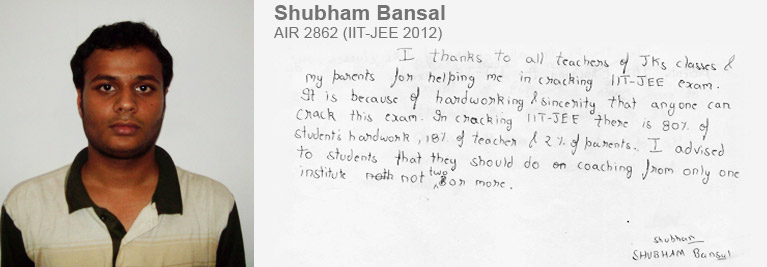 Shubham Bansal
AIR 2862 (IIT-JEE 2012)
I thanks to all teachers of JKs classes &
my parents for helping me in cracking IIT-JEE exam.
It is because of hardworking & sincerity that anyone can
crack this exam. In cracking IIT-JEE there is 80% of
student's hardwork, 18% of teacher & 2% of parents. I advised
to students that they should do coaching from only one
institute not two or more.
Shubham
SHUBHAM Bansal